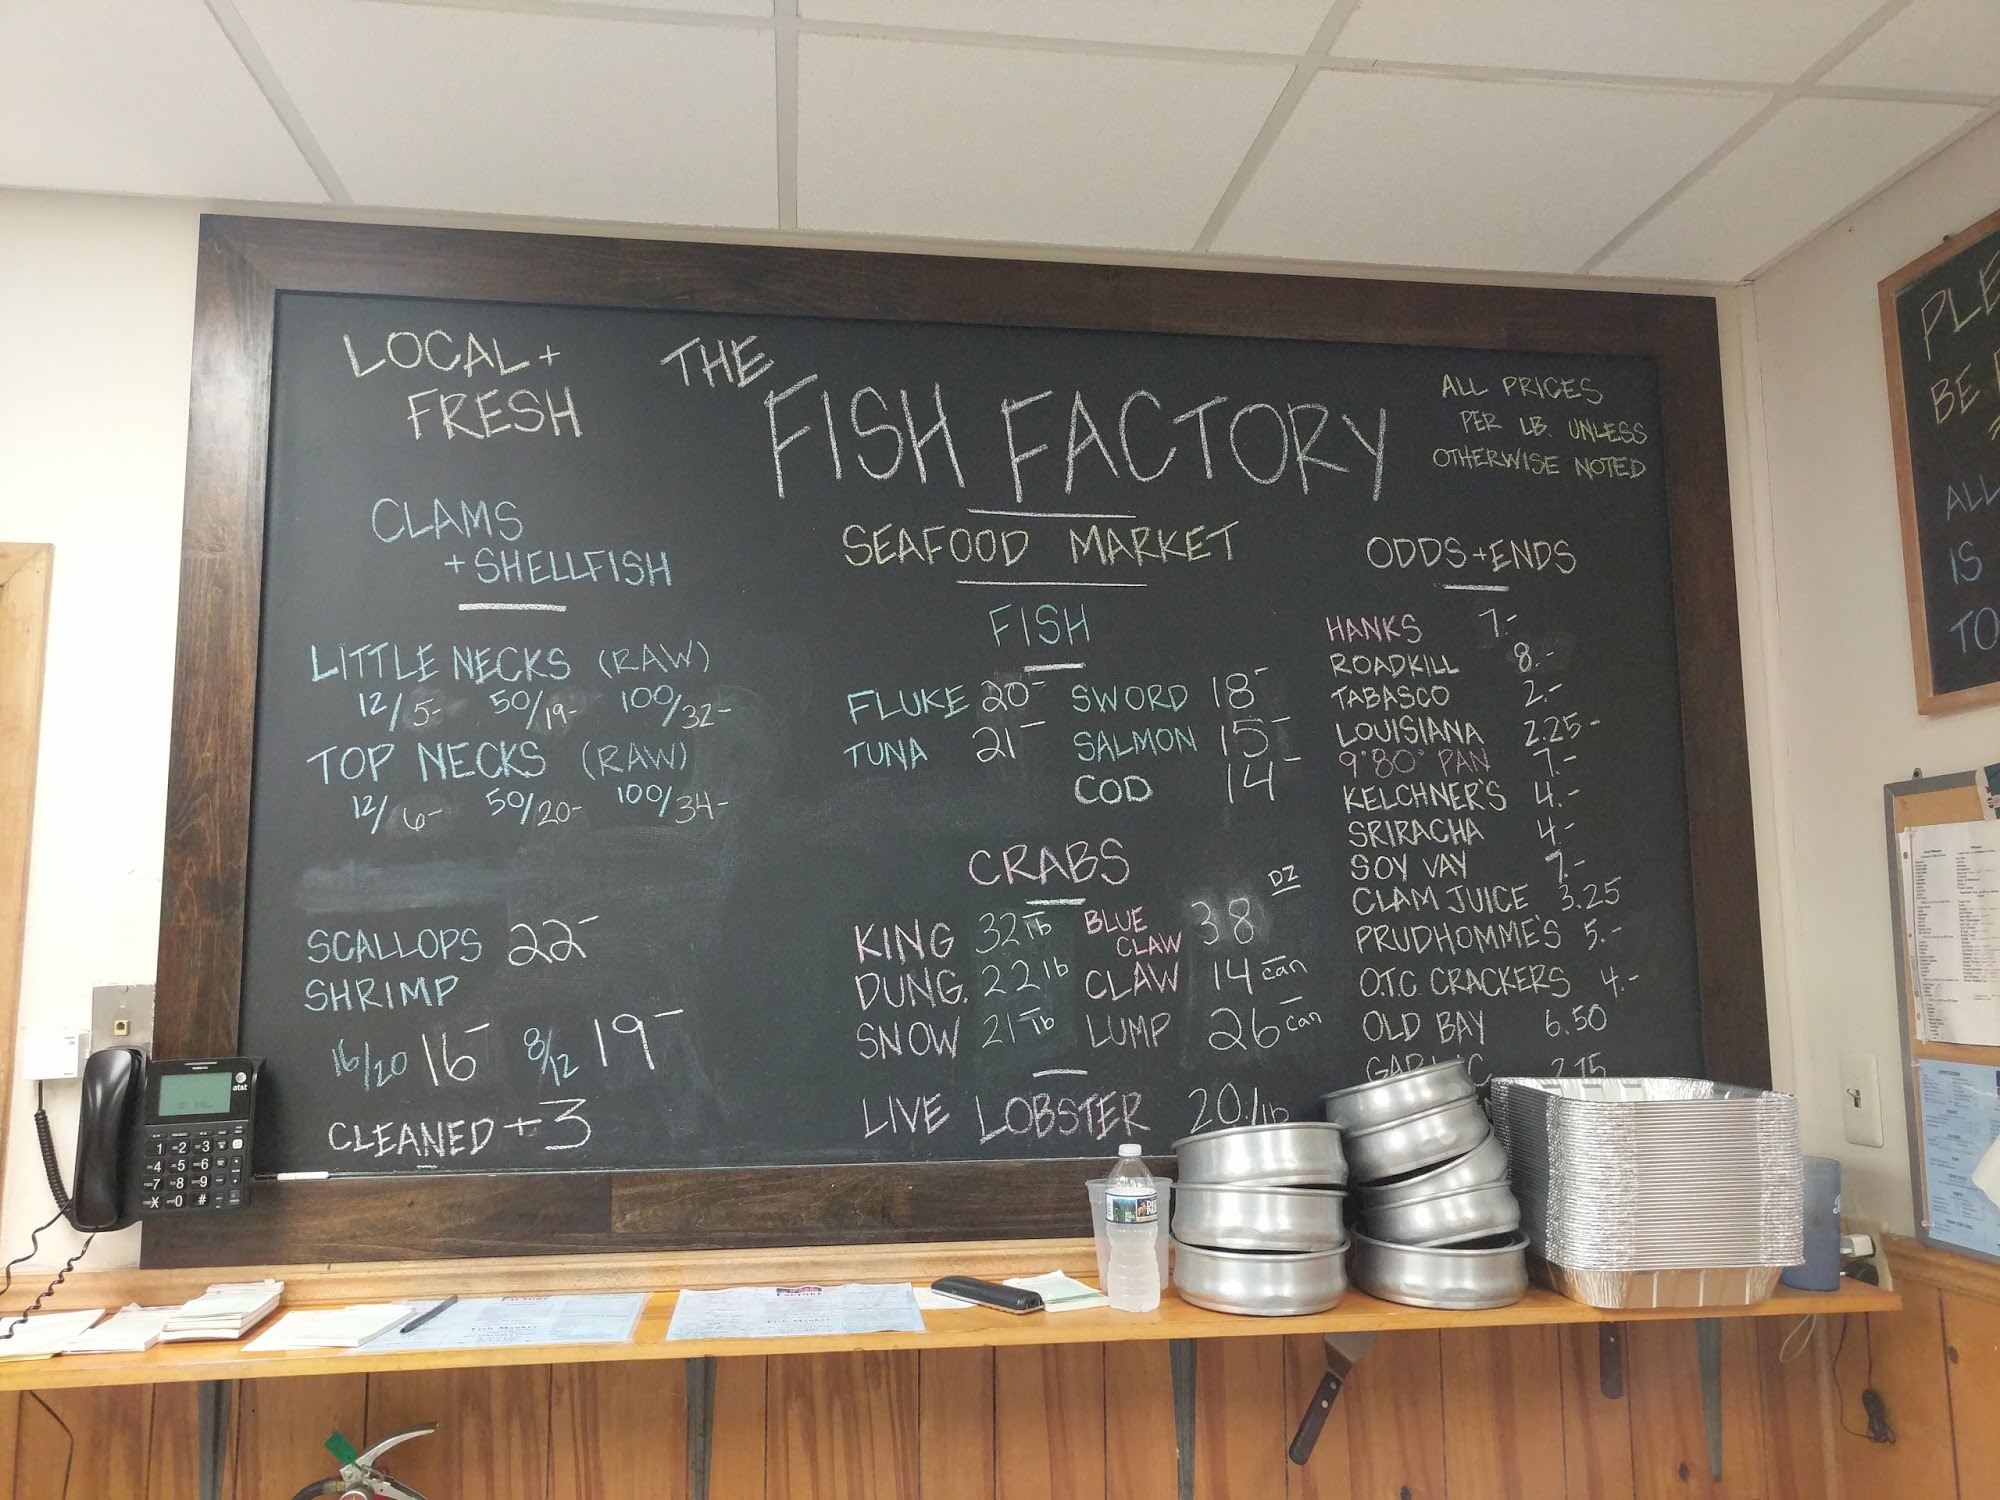 LOCAL +
FRESH
THE
FISH FACTORY
SEAFOOD MARKET
ALL PRICES
PER LB. UNLESS
OTHERWISE NOTED
CLAMS
+ SHELLFISH
LITTLE NECKS (RAW)
12/5- 50/19- 100/32-
TOP NECKS (RAW)
12/6- 50/20- 100/34-
SCALLOPS 22-
SHRIMP
16/20 16- 8/12 19-
CLEANED +3
FISH
FLUKE 20- SWORD 18-
TUNA 21- SALMON 15-
COD 14-
CRABS
DZ
KING 32 lb BLUE CLAW 38
DUNG. 22 lb CLAW 14 can
SNOW 21 lb LUMP 26 can
LIVE LOBSTER 20./lb
ODDS + ENDS
HANKS 7.-
ROADKILL 8.-
TABASCO 2.-
LOUISIANA 2.25-
9" 80° PAN 7.-
KELCHNER'S 4.-
SRIRACHA 4.-
SOY VAY 7.-
CLAM JUICE 3.25
PRUDHOMME'S 5.-
O.T.C. CRACKERS 4.-
OLD BAY 6.50
2.75
BE
IS
TO
at&t
1 2 3
4 5 6
7 8 9
* 0 #
FACTORY
Fish Market